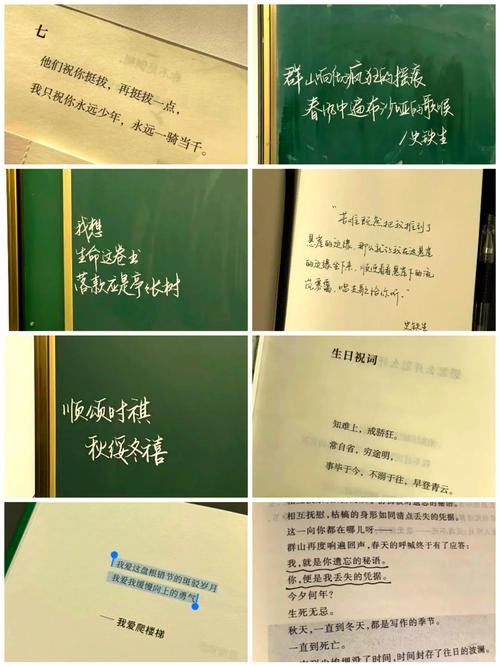 七
他们祝你挺拔，再挺拔一点，
我只祝你永远少年，永远一骑当千。
群山响彻疯狂的摇滚
春风中遍布沙哑的歌喉
/史铁生
我想
生命这卷书
落款应是亭张树
"苦难既然把我推到了
悬崖的边缘，那么就让我在这悬崖
的边缘坐下来，顺便看看悬崖下的流
岚雾霭，唱支歌给你听。"
史铁生
顺颂时祺
秋绥冬禧
生日祝词
知难上，戒骄狂。
常自省，穷途明，
事毕于今，不溺于往，早登青云。
我爱这盘根错节的斑驳岁月
我爱我缓慢向上的勇气
——我爱爬楼梯
相互抚慰，枯槁的身形如同清点丢失的凭据。
这一向你都在哪儿呀——
群山再度响遍回声，春天的呼喊终于有了应答：
我，就是你遗忘的秘语。
你，便是我丢失的凭据。
今夕何年？
生死无忌。
秋天，一直到冬天，都是写作的季节。
一直到死亡。
时间，时间封存了往日的波澜。